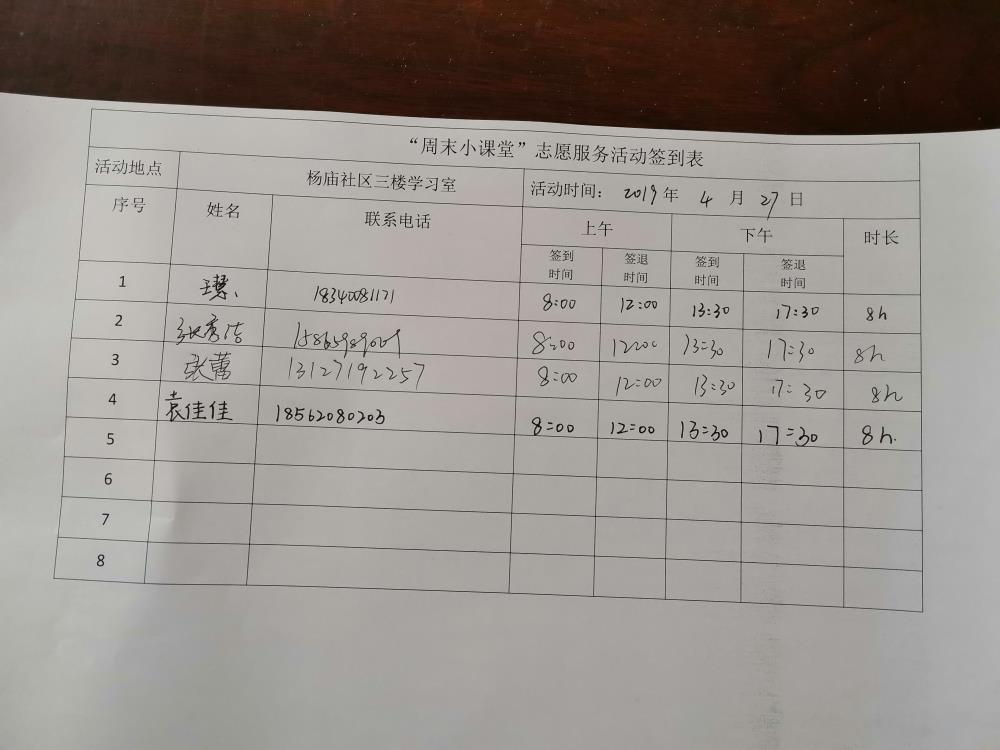 “周末小课堂”志愿服务活动签到表
活动地点 杨庙社区三楼学习室 活动时间: 2019年 4月 27日
序号 姓名 联系电话 上午 下午 时长
签到时间 签退时间 签到时间 签退时间
1 18340081171 8:00 12:00 13:30 17:30 8h
2 8:00 12:00 13:30 17:30 8h
3 张蕾 13127192257 8:00 12:00 13:30 17:30 8h
4 袁佳佳 18562080203 8:00 12:00 13:30 17:30 8h.
5
6
7
8